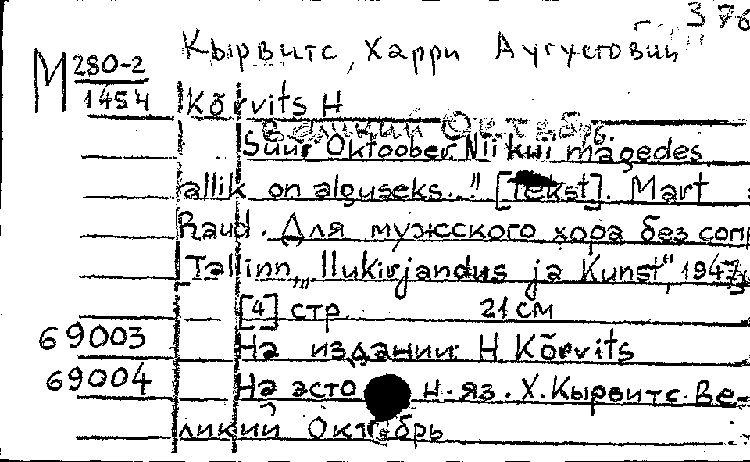 376
Кырвитс, Харри Аугустович
М 280-2
1454
Kõrvits H
Великий Октябрь.
Suur Oktoober. Nii kui mägedes
allik on alguseks..." [Tekst]. Mart
Raud. Для мужсского хора без соп
Tallinn, "Ilukirjandus ja Kunst", 1947
[4] стр 21 см
69003 На издании: H Kõrvits
69004 На эсто н. яз. Х. Кырвитс. Ве-
ликий Октябрь